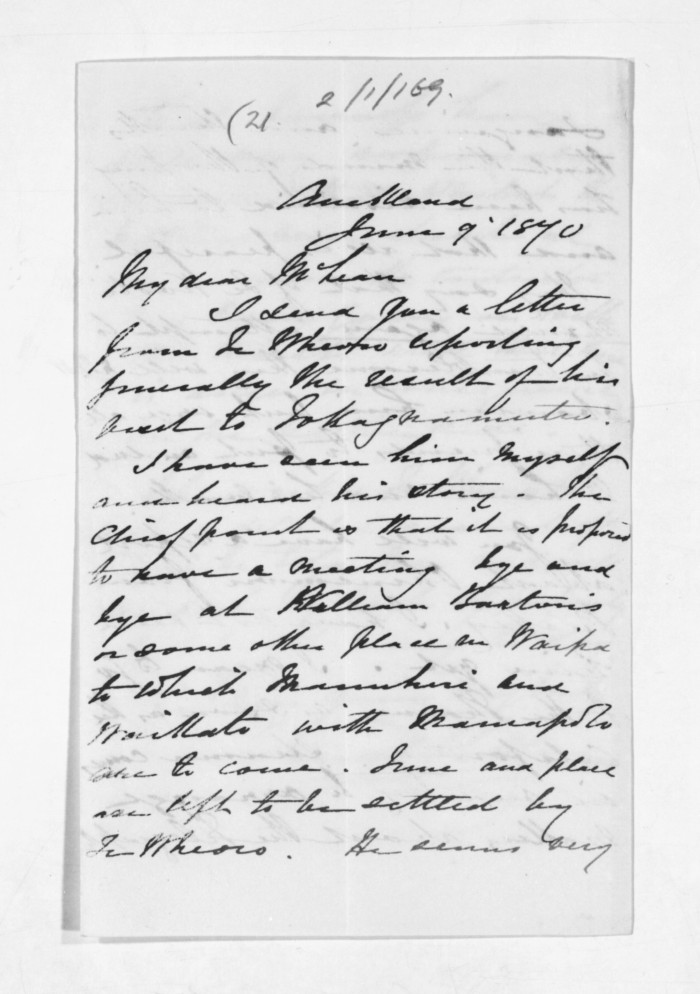 2/1/169.
(21
Auckland
June 9. 1870
My dear McLean
I send you a letter
from Te Wheoro reporting
generally the result of his
visit to Tokagnamutu.
I have seen him myself
and heard his story. The
chief point is that it is proposed
to have a meeting bye and
bye at William Barton's
or some other place in Waipa
to which Manuhiri and
Waikato with Maniapoto
are to come. Time and place
are left to be settled by
Te Wheoro. He seems very